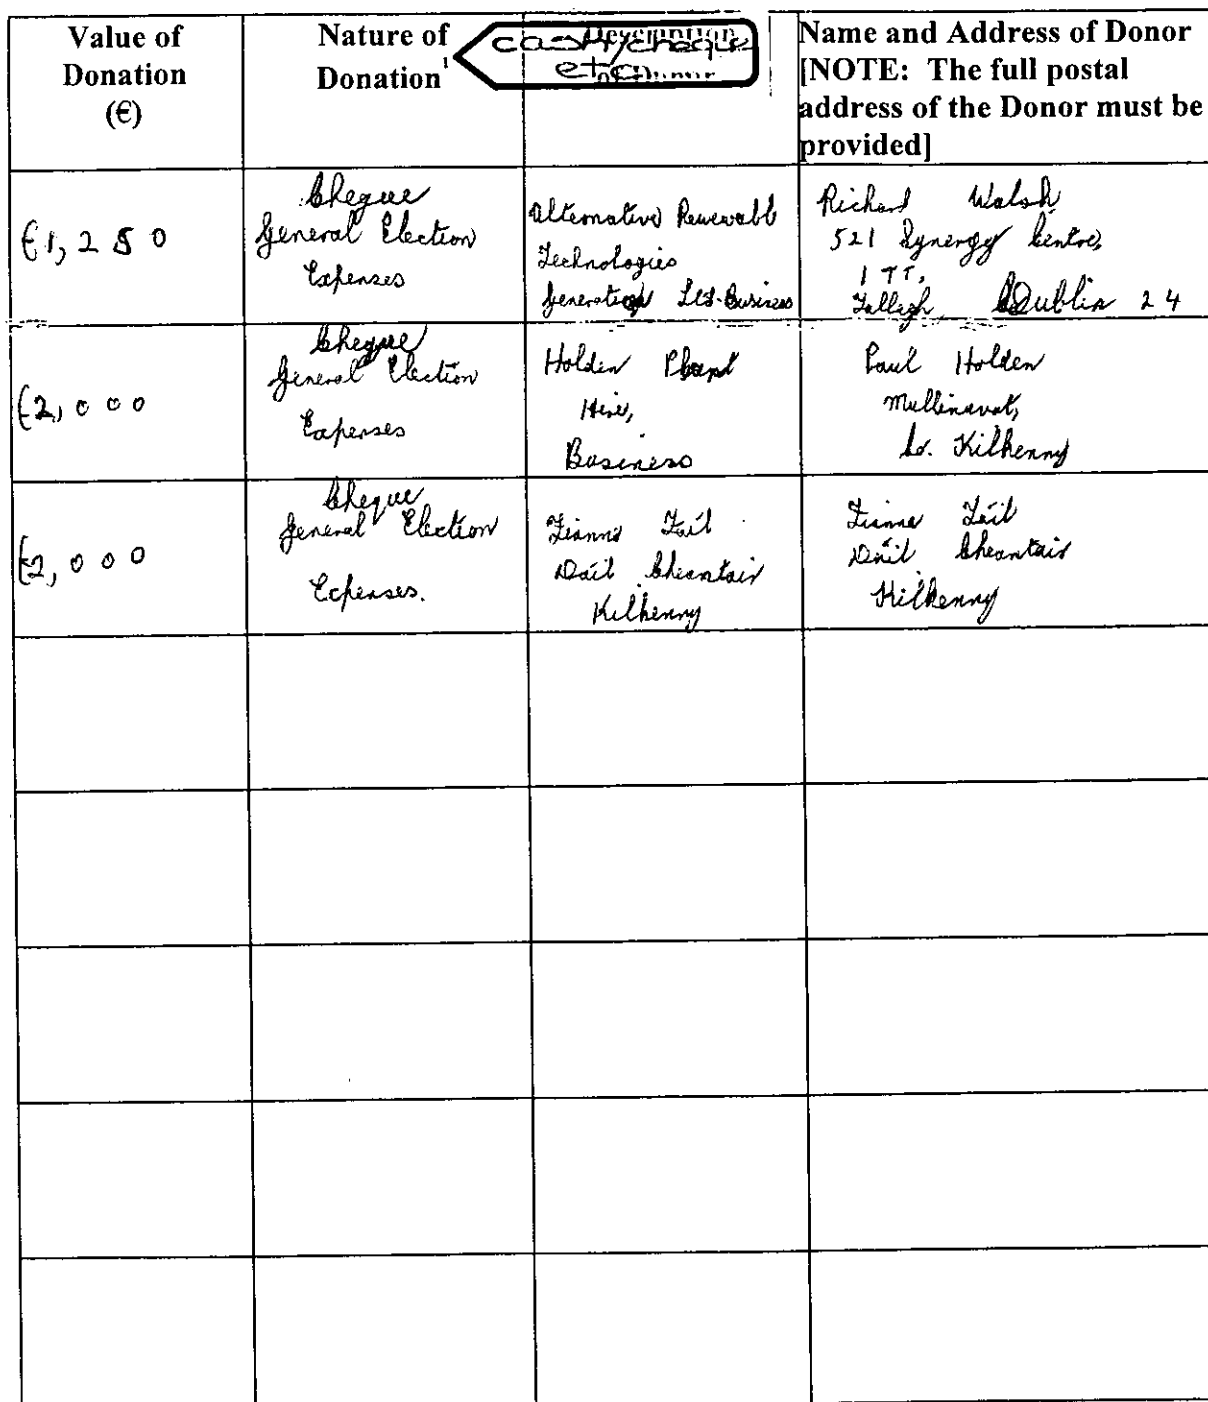 Value of
Donation
(€)
Nature of
Donation¹
cash/cheque
etc
Description
Name and Address of Donor
[NOTE: The full postal
address of the Donor must be
provided]
€1,250
Cheque
General Election
Expenses
Alternative Renewable
Technologies
Generation Ltd-Business
Richard Walsh
521 Synergy Centre,
ITT,
Tallagh, Dublin 24
€2,000
Cheque
General Election
Expenses
Holden Plant
Hire,
Business
Paul Holden
Mullinavat,
Co. Kilkenny
€2,000
Cheque
General Election
Expenses.
Fianna Fáil
Dáil Cheantair
Kilkenny
Fianna Fáil
Dáil Cheantair
Kilkenny